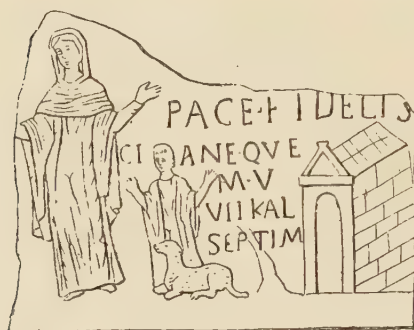 PACE·FIDELIS
CI ANEQVE
M·V
VIIKAL
SEPTIM